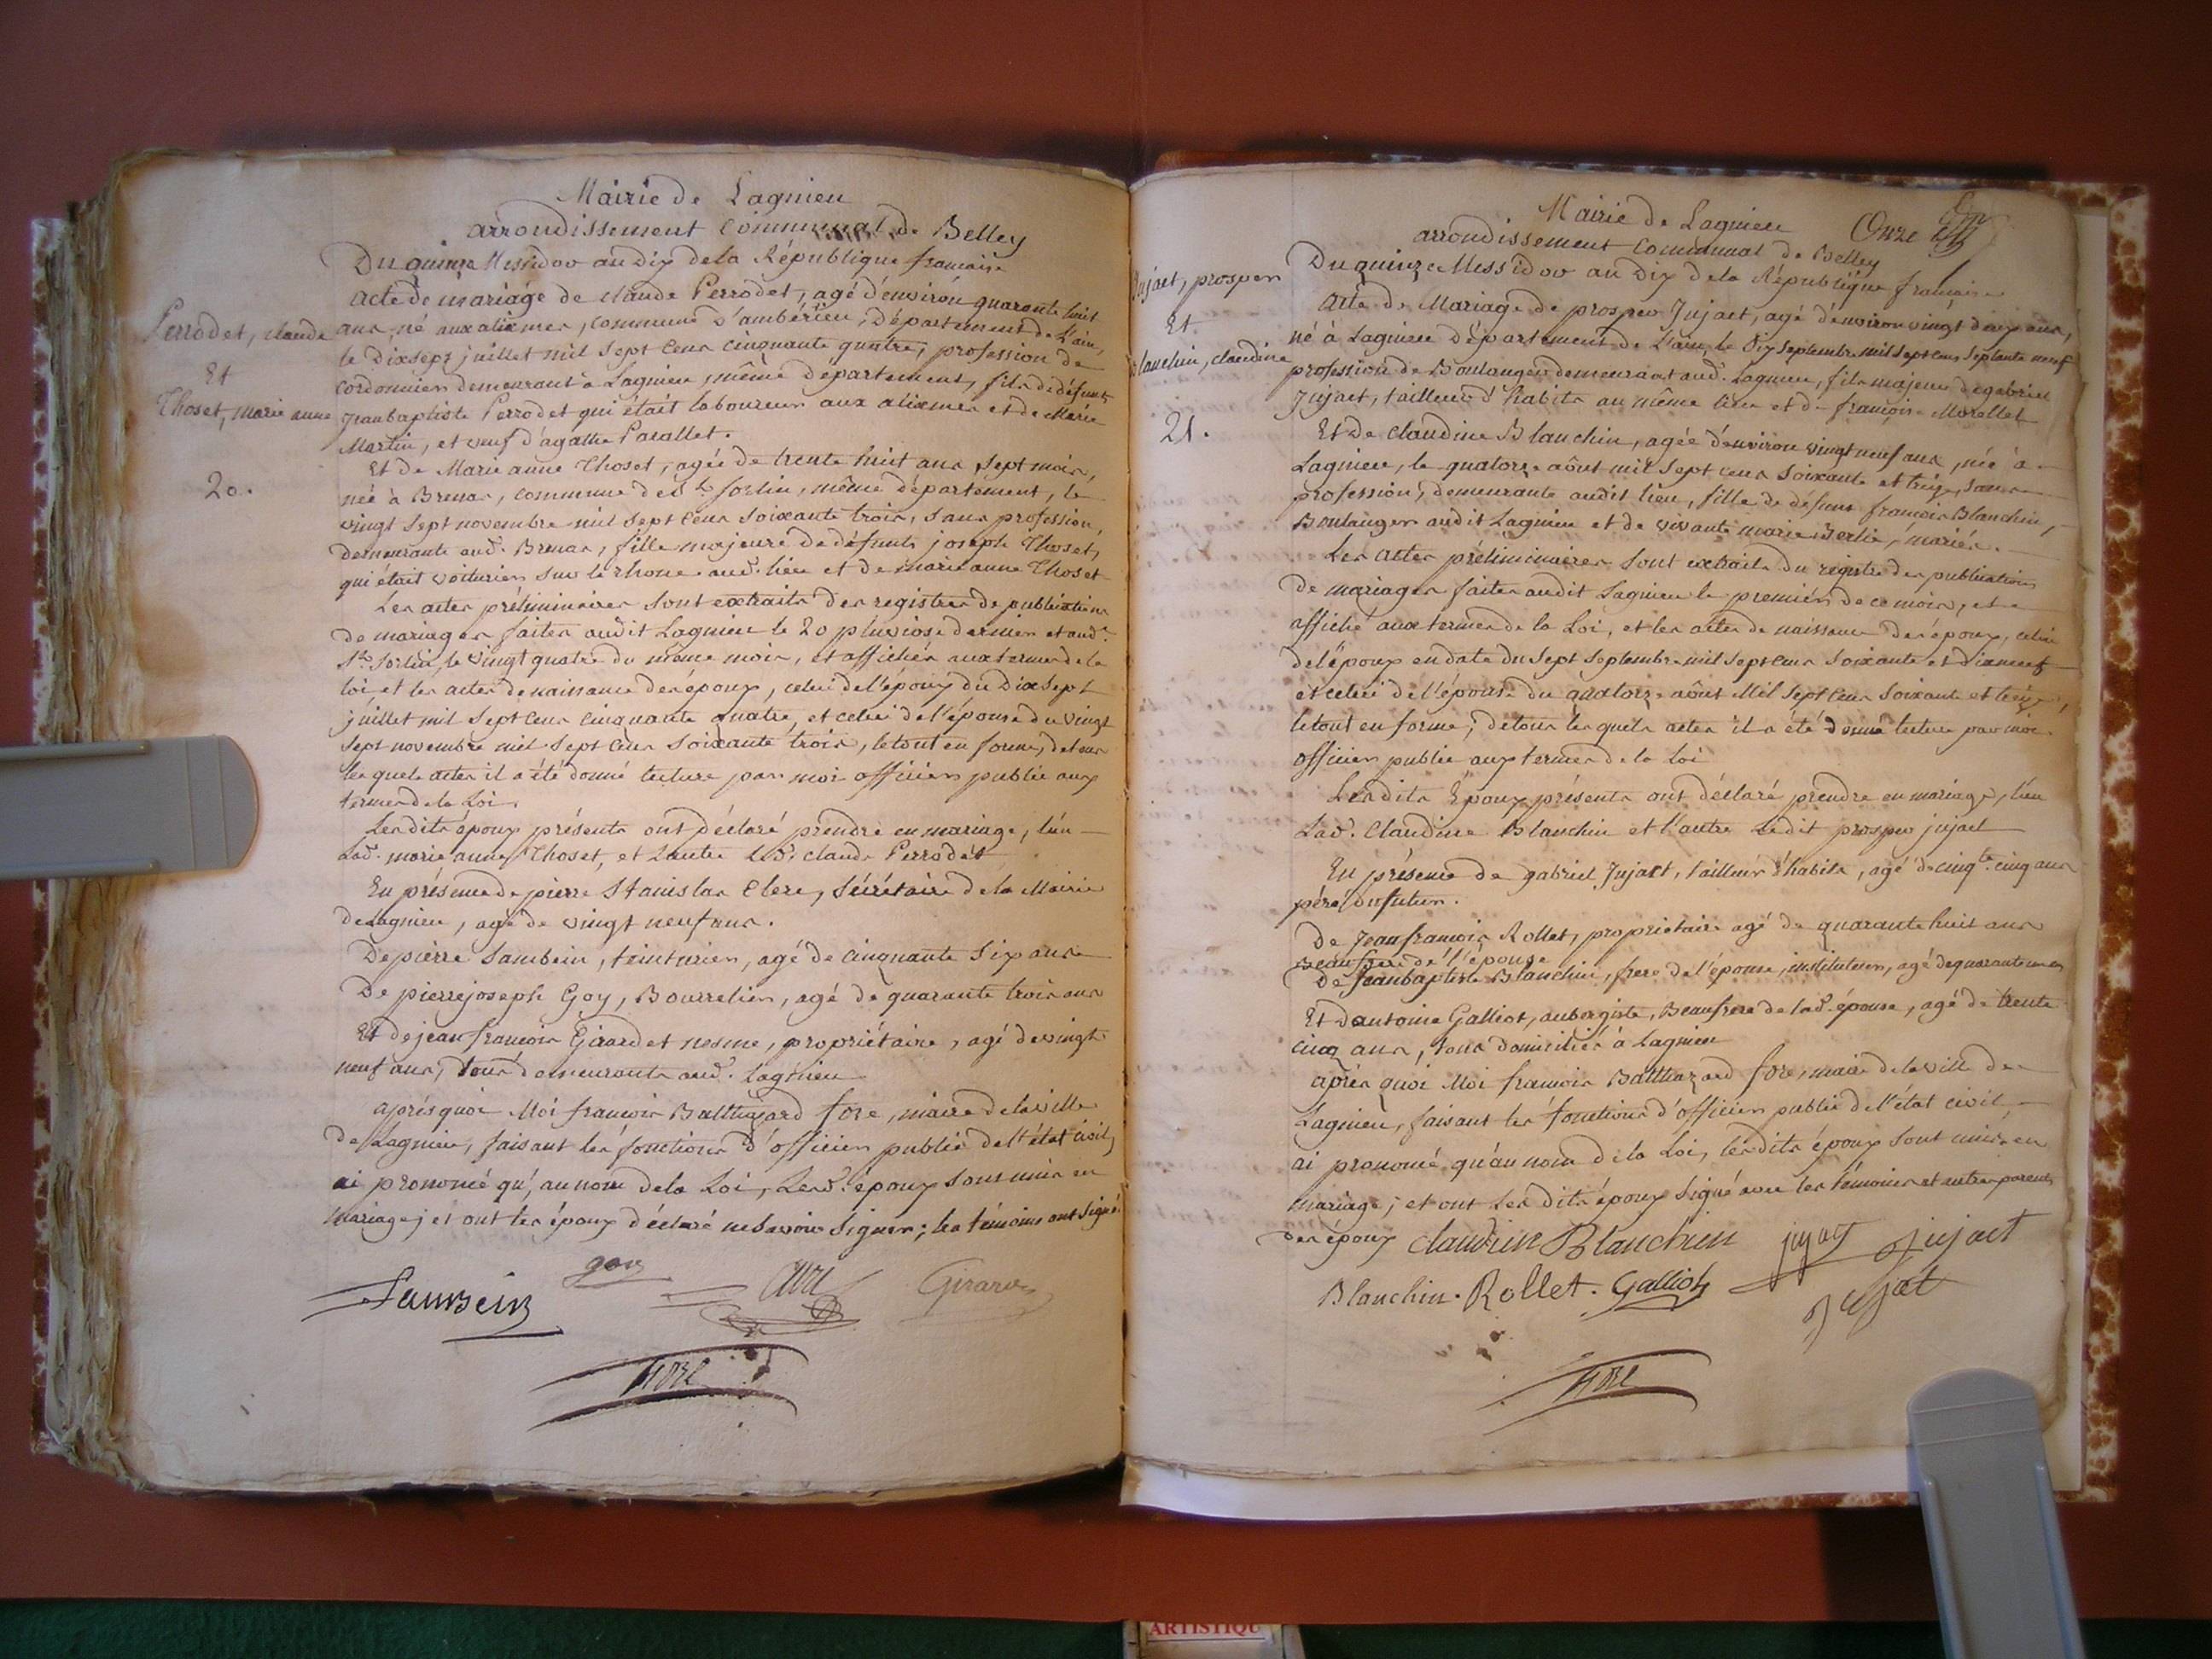 Mairie de Lagnieu
arrondissement Communal de Belley
Du quinze Messidor an Dix de la République française
Acte de mariage de claude Perrodet, agé d'environ quarante huit
Perrodet, claude
Et
Thoset, marie anne
20.
ans né aux alixmes, commune d'ambérieu, Département de L'ain,
le Dix sept juillet mil sept cens cinquante quatre, profession de
Cordonnier demeurant à Lagnieu, même département, fils de défunt
Jean baptiste Perrodet qui était laboureur aux alixmes et de Marie
Martin, et veuf d'agathe Parallet.
Et de Marie anne Thoset, agée de trente huit ans sept mois,
née à Brunas, commune de St. Sorlin, même département, le
vingt sept novembre mil sept cens soixante trois, sans profession,
demeurante aud. Brunas, fille majeure de défunts joseph Thoset,
qui était voiturier sur le rhone aud. lieu et de marie anne Thoset
Les actes préliminaires sont extraits des registres de publications
de mariages faites audit Lagnieu le 20 pluviose dernier et aud.
St. Sorlin, le vingt quatre du même mois, et affichés aux termes de la
loi et les actes de naissance des époux, celui de l'époux du Dix sept
juillet mil sept cens cinquante quatre, et celui de l'épouse du vingt
sept novembre mil sept cens soixante trois, le tout en forme, de tous
les quels actes il a été donné lecture par moi officier public aux
termes de la Loi.
Lesdits époux présents ont déclaré prendre en mariage, l'un
Lad. marie anne Thoset, et Lautre led. claude Perrodet
En présence de pierre Stanislas Clerc, Sécrétaire de la Mairie
de Lagnieu, agé de vingt neuf ans.
De pierre Sambein, teinturier, agé de cinquante six ans
De pierre joseph Goy, Bourrelier, agé de quarante trois ans
Et de jean françois Girardet nesme, propriétaire, agé de vingt
neuf ans, tous demeurants aud. lagnieu
après quoi Moi françois Balthazard fore, maire de la ville
de Lagnieu, faisant les fonctions d'officier public de l'état civil,
ai prononcé qu'au nom de la Loi, Lesd. époux sont unis en
mariage; et ont les époux déclaré ne savoir signer; les témoins ont signé
Sambein
goy
Girard
fore
Mairie de Lagnieu
Onze
arrondissement Communal de Belley
Du quinze Messidor an Dix de la République française
Jujaet, prosper
Et
Blanchin, claudine
21.
Acte de Mariage de prosper Jujaet, agé d'environ vingt deux ans,
né à Lagnieu Département de L'ain, le Dix Septembre mil sept cens septante neuf
profession de Boulanger demeurant aud. Lagnieu, fils majeur de gabriel
Jujaet, tailleur d'habits au même lieu et de françoise Morellet
Et de claudine Blanchin, agée d'environ vingt neuf ans, née à
Lagnieu, le quatorze aôut mil sept cens soixante et treize, sans
profession, demeurante audit lieu, fille de défunt françois Blanchin,
Boulanger audit Lagnieu et de vivante marie Berlie, mariés.
Les actes préliminaires sont extraits du registre des publications
de mariages faites audit Lagnieu le premier de ce mois, et
affiché aux termes de la Loi, et les actes de naissance des époux, celui
de l'époux en date du sept septembre mil sept cens soixante et dix neuf
et celui de l'épouse du quatorze aôut Mil sept cens soixante et treize,
le tout en forme; de tous les quels actes il a été donné lecture par moi
officier public aux termes de la Loi
Lesdits Époux présents ont déclaré prendre en mariage, l'un
Lad. Claudine Blanchin et l'autre ledit prosper jujaet
En présence de gabriel Jujaet, tailleur d'habits, agé de cinqte. cinq ans
père du futur.
De Jean françois Rollet, propriétaire agé de quarante huit ans
Beaufrere de l'épouse
De Jean baptiste Blanchin, frere de l'épouse, instituteur, agé de quarante un ans
Et D'antoine Galliot, aubergiste, Beaufrere de lad. épouse, agé de trente
cinq ans, tous domiciliés à Lagnieu
après quoi Moi françois Balthazard fore, maire de la ville de
Lagnieu, faisant les fonctions d'officier public de l'état civil,
ai prononcé qu'au nom de la Loi, lesdits époux sont unis en
mariage; et ont Les dits époux signé avec les témoins et autres parents
des époux claudine Blanchin jujaet jujaet
Blanchin. Rollet. Galliot jujaet
fore
ARTISTIQU